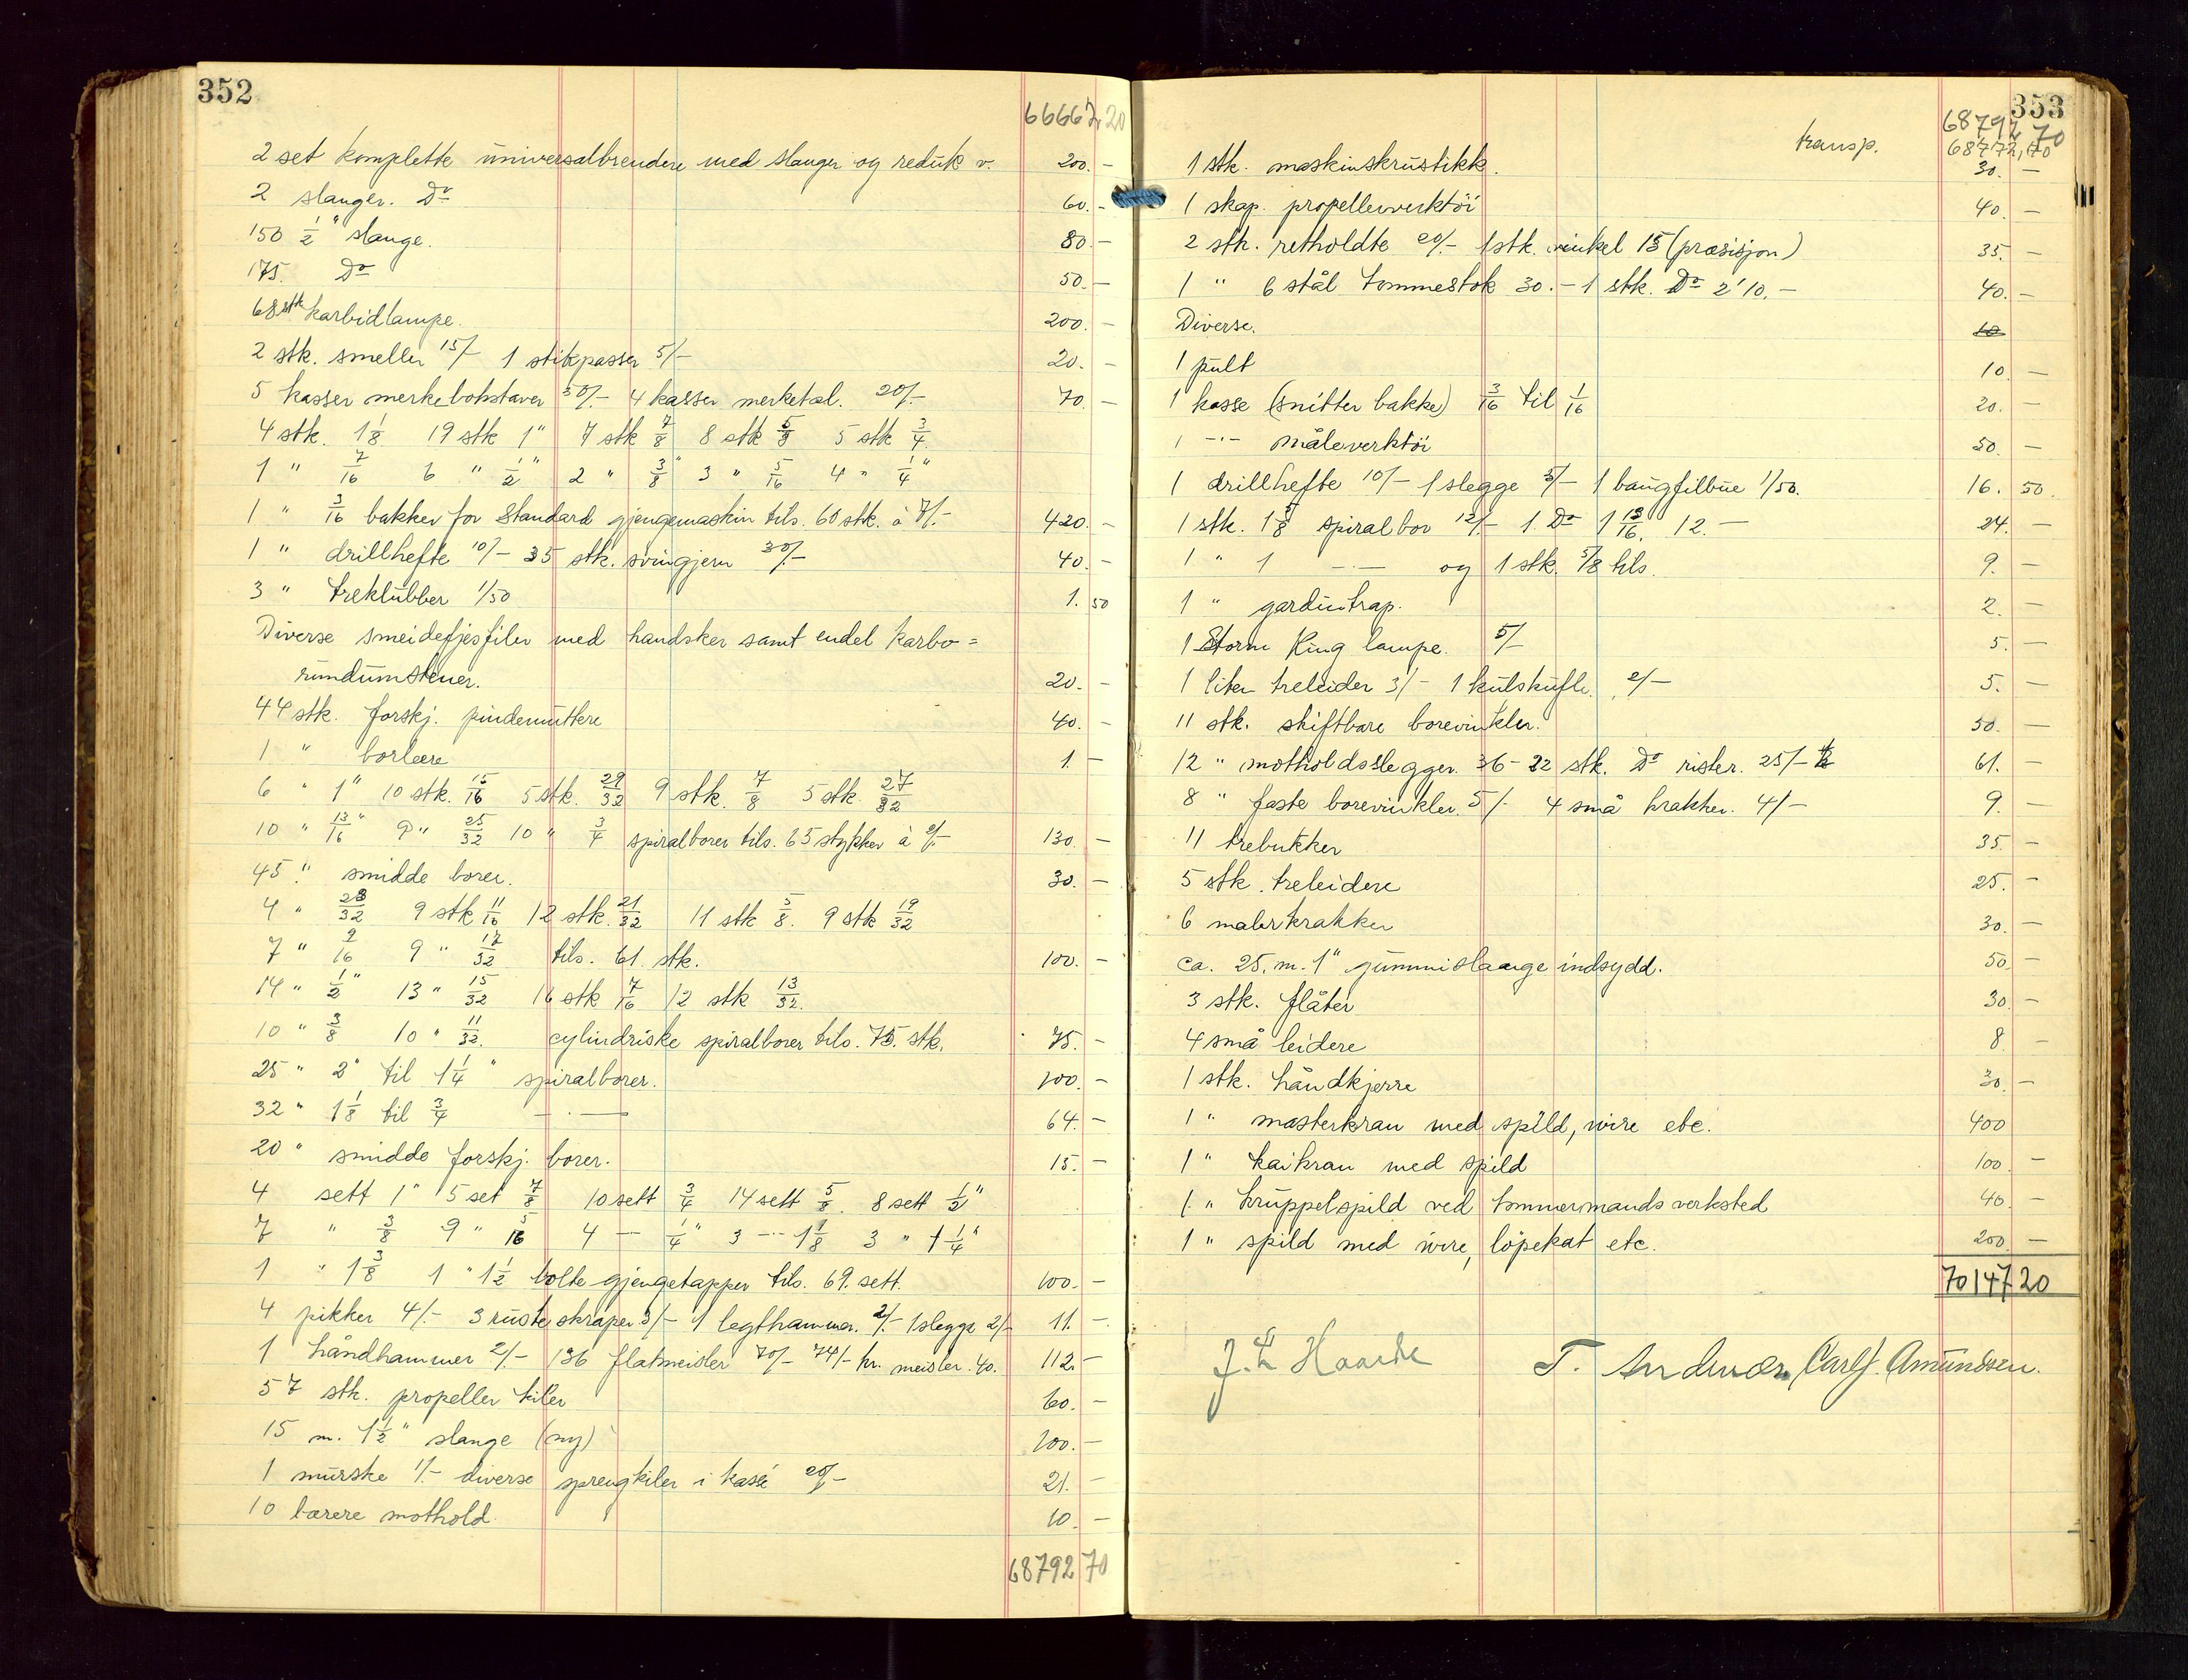 352
66667,20
2 set komplette universalbrendere med slanger og reduk v. 200.-
2 slanger. Do 60.-
150 1/2" slange. 80.-
175. Do 50.-
68 stk karbidlampe. 200.-
2 stk. smeller 15/- 1 stikpasser 5/- 20.-
5 kasser merkebokstaver 50/- 4 kasser merketal. 20/- 70.-
4 stk. 1 1/8 19 stk 1" 7 stk 7/8 8 stk 5/8 5 stk 3/4.
1 " 7/16 6 " 1/2" 2 " 3/8" 3 " 5/16 4 " 1/4"
1 " 3/16 bakker for Standard gjengemaskin tils. 60 stk. à 7/- 420.-
1 " drillhefte 10/- 35 stk. svingjern 30/- 40.-
3 " treklubber 1/50 1.50
Diverse smeidefjesfiler med handsker samt endel karbo=
rundumstener. 20.-
44 stk. forskj. pindemuttere 40.-
1 " borlære 1.-
6 " 1" 10 stk. 15/16 5 stk. 29/32 9 stk. 7/8 5 stk. 27/32
10 " 13/16" 9 " 25/32 10 " 3/4 spiralborer tils. 65 stykker à 2/- 130.-
45 " smidde borer. 30.-
4 " 23/32 9 stk 11/16 12 stk. 21/32 11 stk 5/8. 9 stk 19/32
7 " 9/16 9 " 17/32 tils. 61 stk. 100.-
14 " 1/2" 13 " 15/32 16 stk 7/16 12 stk 13/32.
10 " 3/8 10 " 11/32. cylindriske spiralborer tils. 75. stk. 75.-
25 " 2" til 1 1/4" spiralborer. 100.-
32 " 1 1/8 til 3/4 —"— 64.-
20 " smidde forskj. borer. 15.-
4 sett 1" 5 set 7/8 10 sett 3/4 14 sett 5/8. 8 sett 1/2"
7 " 3/8 9 " 5/16 4 — 1/4" 3 -"- 1 1/8 3 " 1 1/4"
1 " 1 3/8 1 " 1 1/2 bolte gjengetapper tils. 69. sett. 100.-
4 pikker 4/- 3 ruste skraper 3/- 1 legthammer. 2/- 1 slegge 2/- 11.-
1 håndhammer 2/- 136 flatmeisler 70/- 74/- kr. meisler. 40. 112.-
57 stk. propeller kiler 60.-
15 m. 1 1/2" slange (ny) 100.-
1 murske 1/- diverse sprengkiler i kasse 20/- 21.-
10 lærere mothold. 10.-
68792 70
353
transp. 68792,70
68772,70
1 stk. maskinskrustikk. 30.-
1 skap. propellerverktöi 40.-
2 stk. retholdte 20/- 1 stk. vinkel 15 (præsisjon) 35.-
1 " 6 stål tommestok 30.- 1 stk. Do 2' 10.- 40.-
Diverse. 10
1 pult 10.-
1 kasse (snitter bakke) 3/16 til 1/16 20.-
1 -"- måleverktöi 50.-
1 drillhefte 10/- 1 slegge 5/- 1 baugfilbue 1/50. 16.50.
1 stk. 1 5/8 spiralbor 12/- 1. Do 1 13/16. 12.- 24.-
1 " 1 —"— og 1 stk. 5/8 tils. 9.-
1 " gardintrap. 2.-
1 Storm King lampe. 5/- 5.-
1 liten treleider 3/- 1 kulskufle. 2/- 5.-
11 stk. skiftbare borevinkler. 50.-
12 " motholdsslegger. 36- 22 stk. Do rister. 25/- 61.-
8 " faste borevinkler. 5/- 4 små krakker. 4/- 9.-
11 trebukker 35.-
5 stk. treleidere 25.-
6 malerkrakker 30.-
ca. 25. m. 1" gummislange indsydd. 50.-
3 stk. flåter 30.-
4 små leidere 8.-
1 stk. håndkjerre 30.-
1 " masterkran med spild, wire etc. 400
1 " kaikran med spild 100.-
1 " kruppelspild ved tommermands verksted 40.-
1 " spild med wire, löpekat etc. 200.-
70147 20
T. Andersen Carl J. Amundsen.